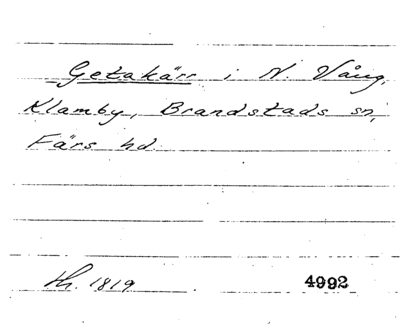 Getakärr i N. Vång,
Klamby, Brandstads sn,
Färs hd.
th. 1819. 4992